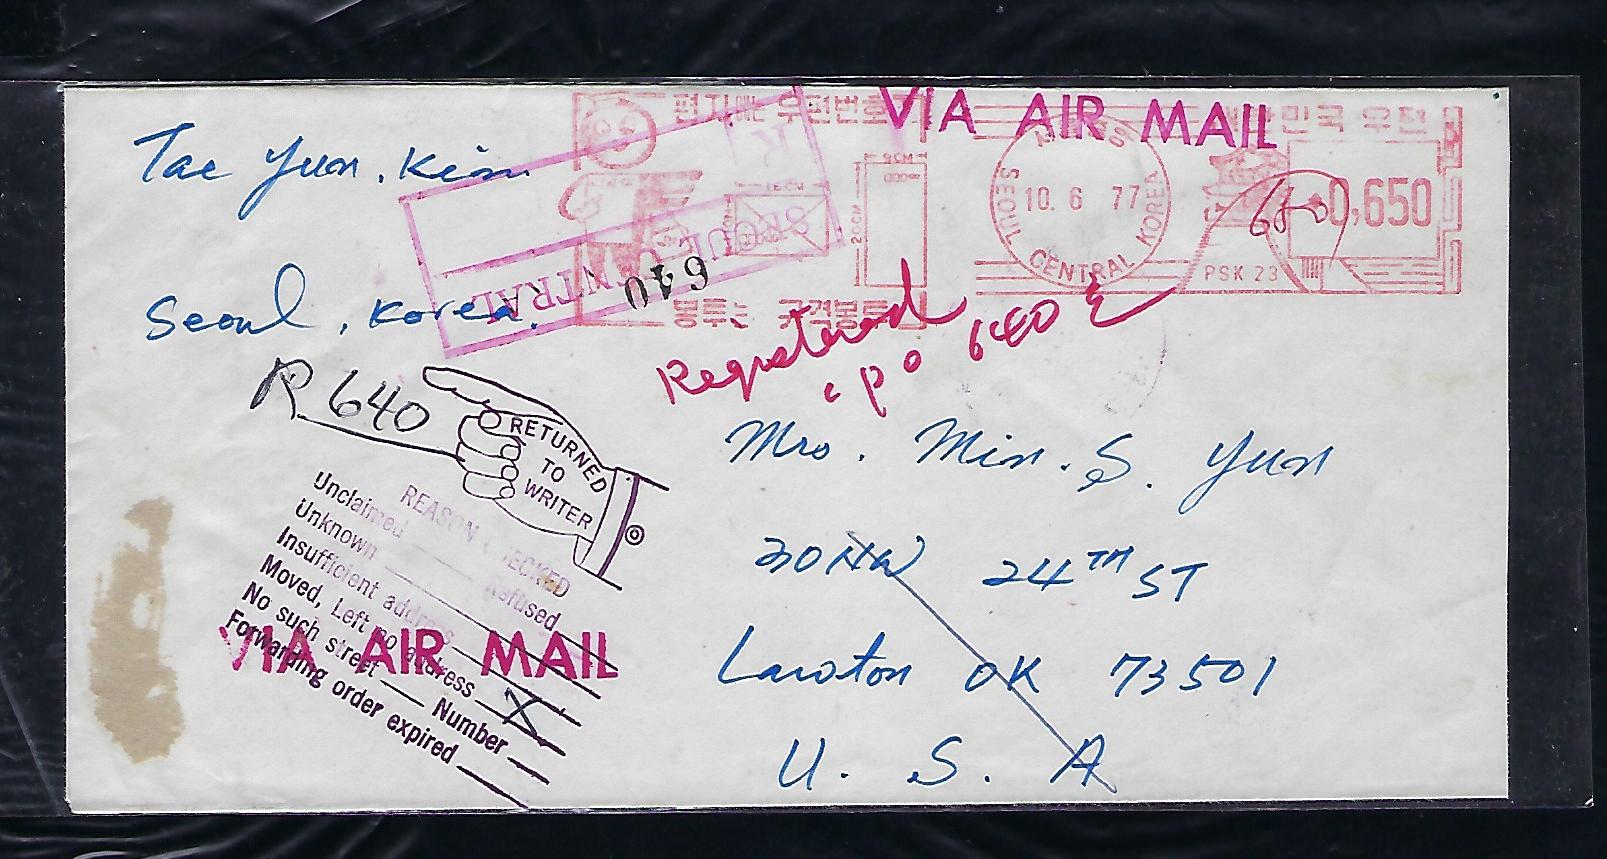 VIA AIR MAIL
편지에 우편번호
대한민국 우편
9CM
16CM
20CM
SEOUL CENTRAL KOREA
10. 6 77
0,650
PSK 23
680
Tae Yun. Kim
Seoul, Korea.
R
SEOUL CENTRAL
640
봉투는 규격봉투
Registered
cpo 640
R 640
RETURNED
TO
WRITER
REASON CHECKED
Unclaimed Refused
Unknown
Insufficient address
Moved, Left no address X
No such street Number
Forwarding order expired
VIA AIR MAIL
Mrs. Min. S. Yun
NW 24TH ST
Lawton OK 73501
U. S. A